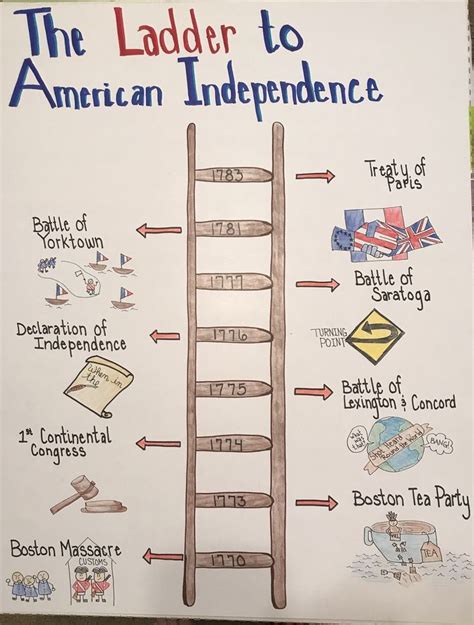 The Ladder to
American Independence
1783
Treaty of
Paris
1781
Battle of
Yorktown
1777
Battle of
Saratoga
TURNING
POINT
1776
Declaration of
Independence
When in
the
1775
Battle of
Lexington & Concord
What
was
that?
Shot Heard
'Round the World
BANG!
1774
1st Continental
Congress
1773
Boston Tea Party
TEA
1770
Boston Massacre
CUSTOMS